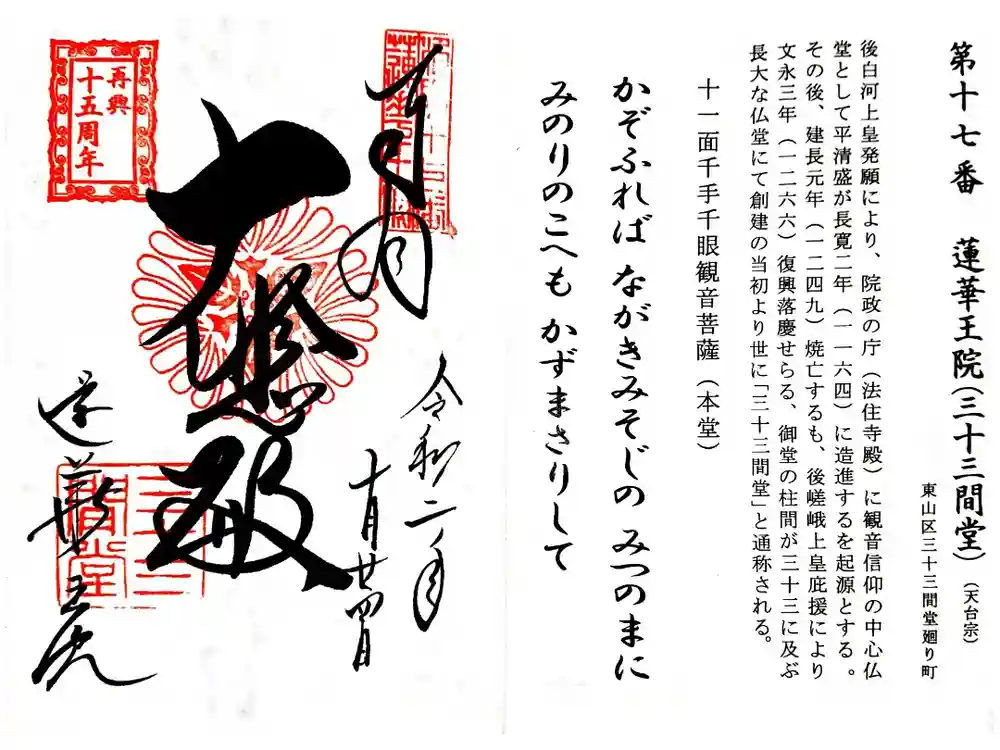 第十七番 蓮華王院(三十三間堂)(天台宗)
東山区三十三間堂廻り町
後白河上皇発願により、院政の庁(法住寺殿)に観音信仰の中心仏
堂として平清盛が長寛二年(一一六四)に造進するを起源とする。
その後、建長元年(一二四九)焼亡するも、後嵯峨上皇庇援により
文永三年(一二六六)復興落慶せらる、御堂の柱間が三十三に及ぶ
長大な仏堂にて創建の当初より世に「三十三間堂」と通称される。
十一面千手千眼観音菩薩(本堂)
かぞふれば ながきみそじの みつのまに
みのりのこへも かずまさりして
奉拝
令和二年
十月廿四日
大悲殿
蓮華王院
三十三間堂
再興
十五周年